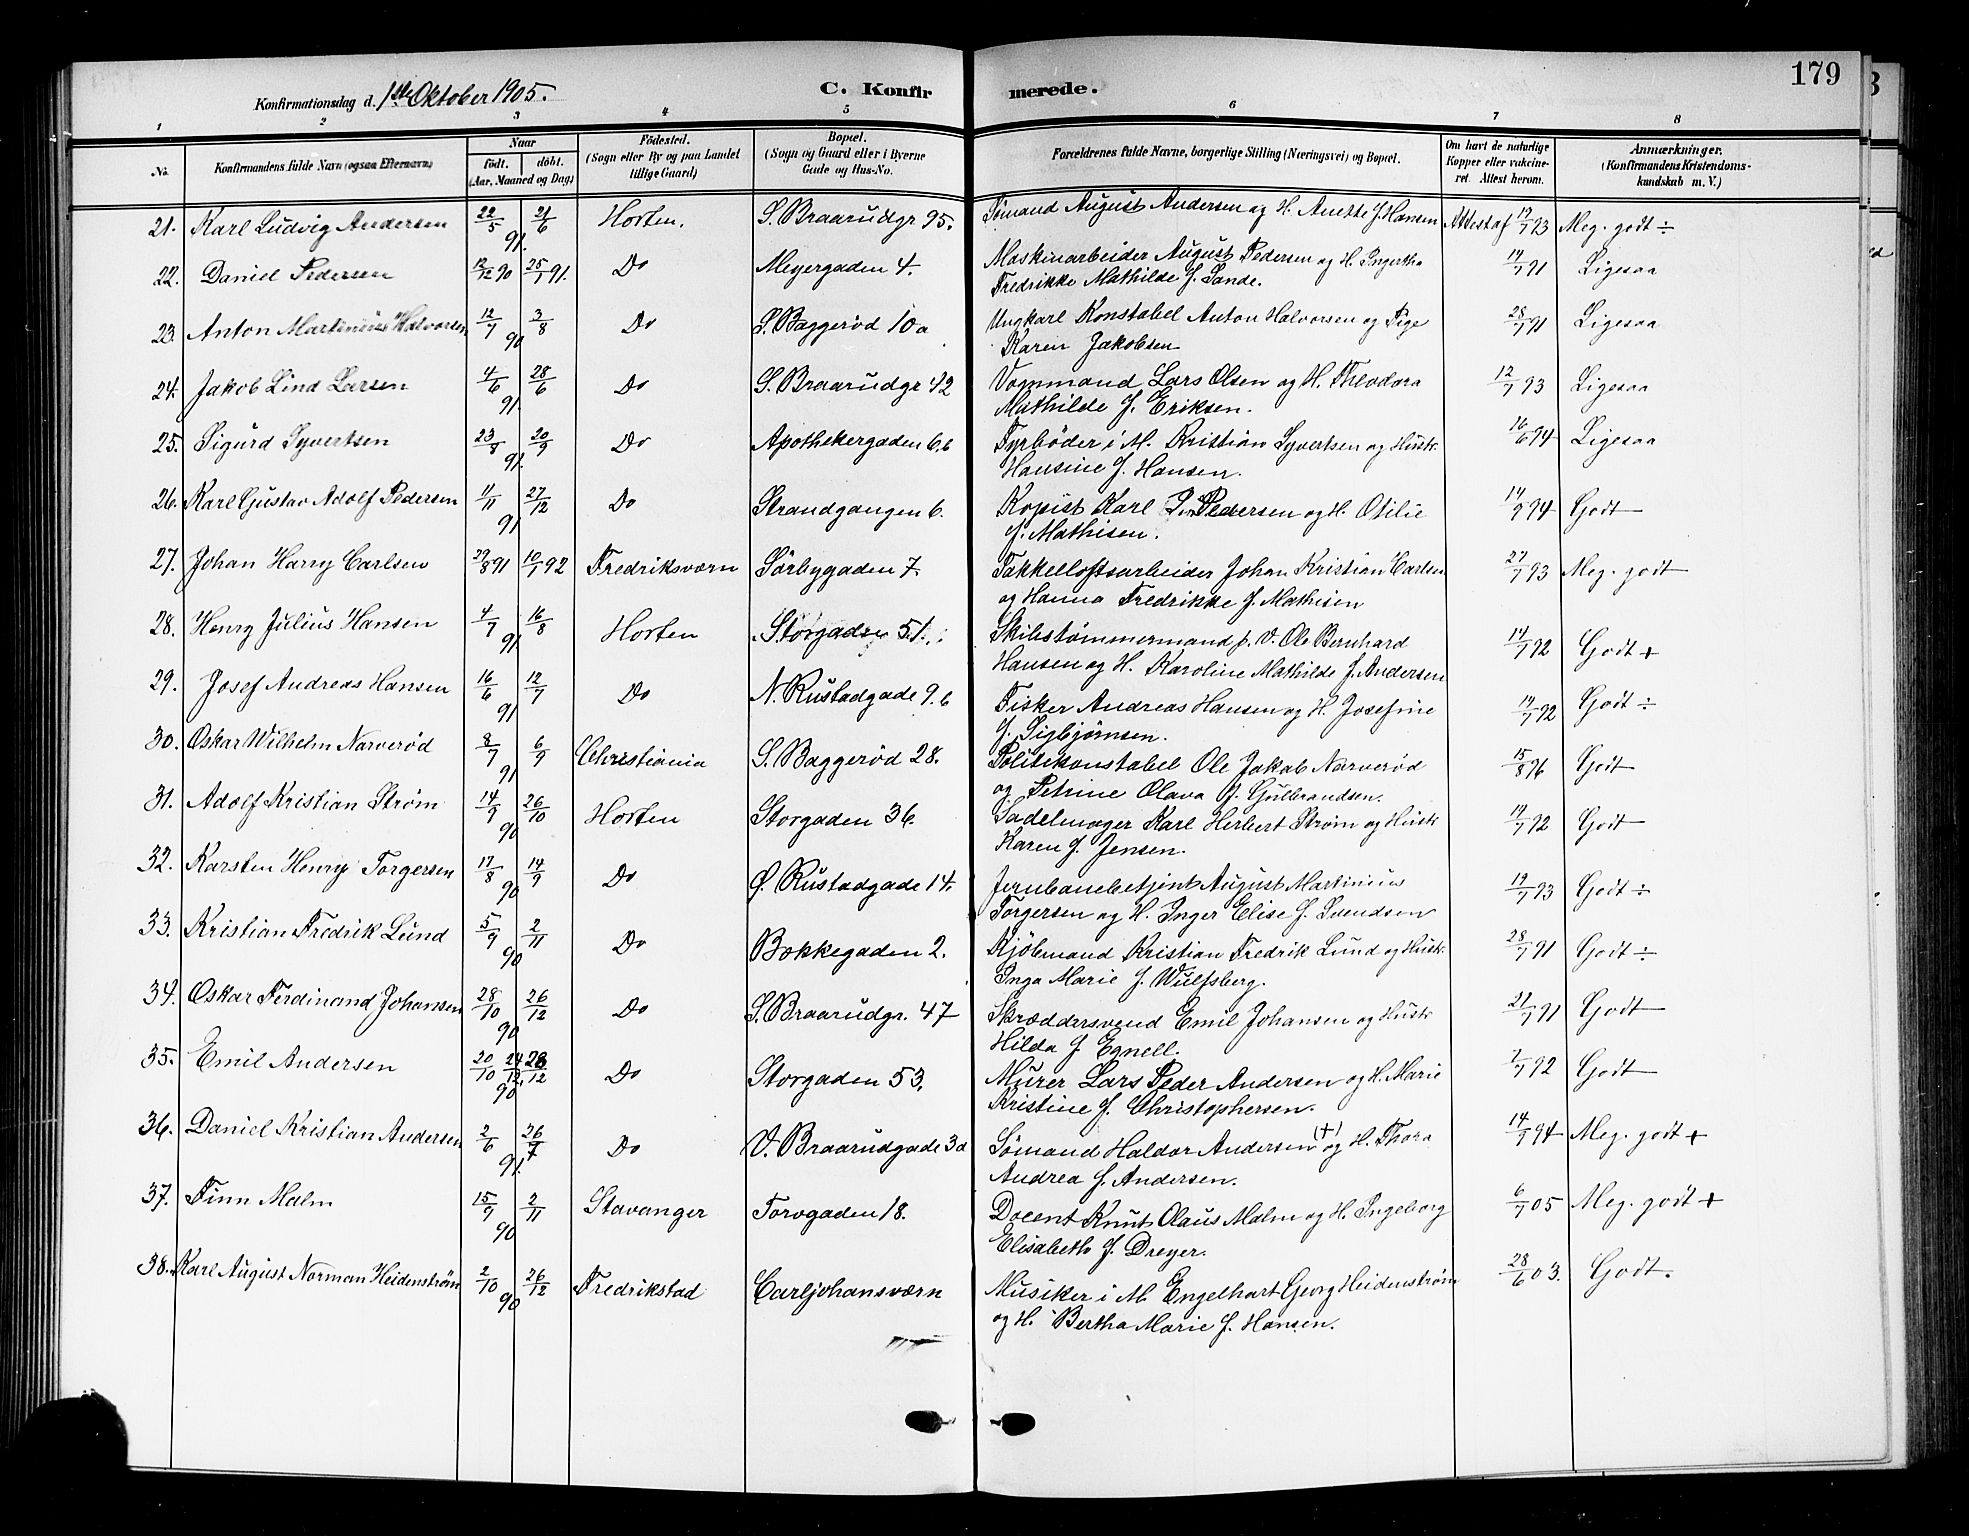 179
Konfirmationsdag d. 1ste Oktober 1905.
C. Konfirmerede.
1 2 3 4 5 6 7 8
No. | Konfirmandens fulde Navn (ogsaa Efternavn) | Naar født. døbt. (Aar, Maaned og Dag) | Fødested. (Sogn eller By og paa Landet tillige Gaard) | Bopæl. (Sogn og Gaard eller i Byerne Gade og Hus-No. | Forældrenes fulde Navne, borgerlige Stilling (Næringsvei) og Bopæl. | Om havt de naturlige Kopper eller vakcineret. Attest herom. | Anmærkninger. (Konfirmandens Kristendomskundskab m. V.)
21. Karl Ludvig Andersen 22/5 91. 21/6 Horten. S. Braarudgr 95. Sømand August Andersen og H. Anette f. Hansen Attest af 17/7 93 Meg. godt ÷
22. Daniel Pedersen 12/12 90 25/1 91. Do Meyergaden 4. Maskinarbeider August Pedersen og H. Ingertha
Fredrikke Mathilde f. Sande. 14/7 91 Ligesaa
23. Anton Martinius Halvorsen 12/7 90 3/8 Do S. Baggerød 10a Ungkarl Konstabel Anton Halvorsen og Pige
Karen Jakobsen 28/7 91 Ligesaa
24. Jakob Lind Larsen 4/6 91. 28/6 Do S. Braarudgr 42 Vognmand Lars Olsen og H. Theodora
Mathilde f. Eriksen. 12/7 93 Ligesaa
25. Sigurd Syvertsen 23/8 91. 20/9 Do Apothekergaden 6.b Fyrbøder i M. Kristian Syvertsen og Hustr.
Hansine f. Hansen. 16/6 94 Ligesaa
26. Karl Gustav Adolf Pedersen 11/11 91 27/12 Do Strandgangen 6. Kopist Karl P. Pedersen og H. Otilie
f. Mathisen. 14/9 94 Godt
27. Johan Harry Carlsen 29/8 91 10/1 92 Fredriksværn Sørbygaden 7. Takkelloftsarbeider Johan Kristian Carlsen
og Hanna Fredrikke f. Mathisen 27/7 93 Meg. godt
28. Henry Julius Hansen 4/7 91 16/8 Horten Storgaden 51. Skibstømmermand p. V. Ole Bernhard
Hansen og H. Karoline Mathilde f. Andersen 14/7 92 Godt +
29. Josef Andreas Hansen 16/6 91 12/7 Do N. Rustadgade 9.b Fisker Andreas Hansen og H. Josefine
f. Sigbjørnsen. 14/7 92 Godt ÷
30. Oskar Wilhelm Narverød 8/7 91 6/9 Christiania S. Baggerød 28. Politikonstabel Ole Jakob Narverød
og Petrine Olava f. Gulbrandsen. 15/8 96 Godt
31. Adolf Kristian Strøm 14/9 90 26/10 Horten Storgaden 36. Sadelmager Karl Herbert Strøm og Hustr
Karen f. Jensen. 14/7 92 Godt
32. Karsten Henry Torgersen 17/8 90 14/9 Do Ø. Rustadgade 14. Jernbanebetjent August Martinius
Torgersen og H. Inger Elise f. Svendsen 19/7 93 Godt ÷
33. Kristian Fredrik Lund 5/9 90 2/11 Do Bokkegaden 2. Kjøbmand Kristian Fredrik Lund og Hustr.
Inga Marie f. Wulfsberg. 28/7 91 Godt ÷
34. Oskar Ferdinand Johansen 28/10 90 26/12 Do S. Braarudgr. 47 Skræddersvend Emil Johansen og Hustr
Hilda f Egnell. 21/7 91 Godt
35. Emil Andersen 20/10 90 28/12 Do Storgaden 53. Murer Lars Peder Andersen og H. Marie
Kristine f. Christophersen. 7/7 92 Godt
36. Daniel Kristian Andersen 2/6 91. 26/7 Do V. Braarudgade 3a Sømand Haldor Andersen (+) og H. Thora
Andrea f. Andersen. 14/7 94 Meg. godt +
37. Finn Malm 15/9 90 2/11 Stavanger Torvgaden 18. Docent Knut Olaus Malm og H. Ingeborg
Elisabeth f. Dreyer. 6/7 05 Meg. godt +
38. Karl August Norman Heidenstrøm 2/10 90 26/12 Fredrikstad Carljohansværn Musiker i M. Engelhart Georg Heidenstrøm
og H. Bertha Marie f. Hansen. 28/6 03. Godt.